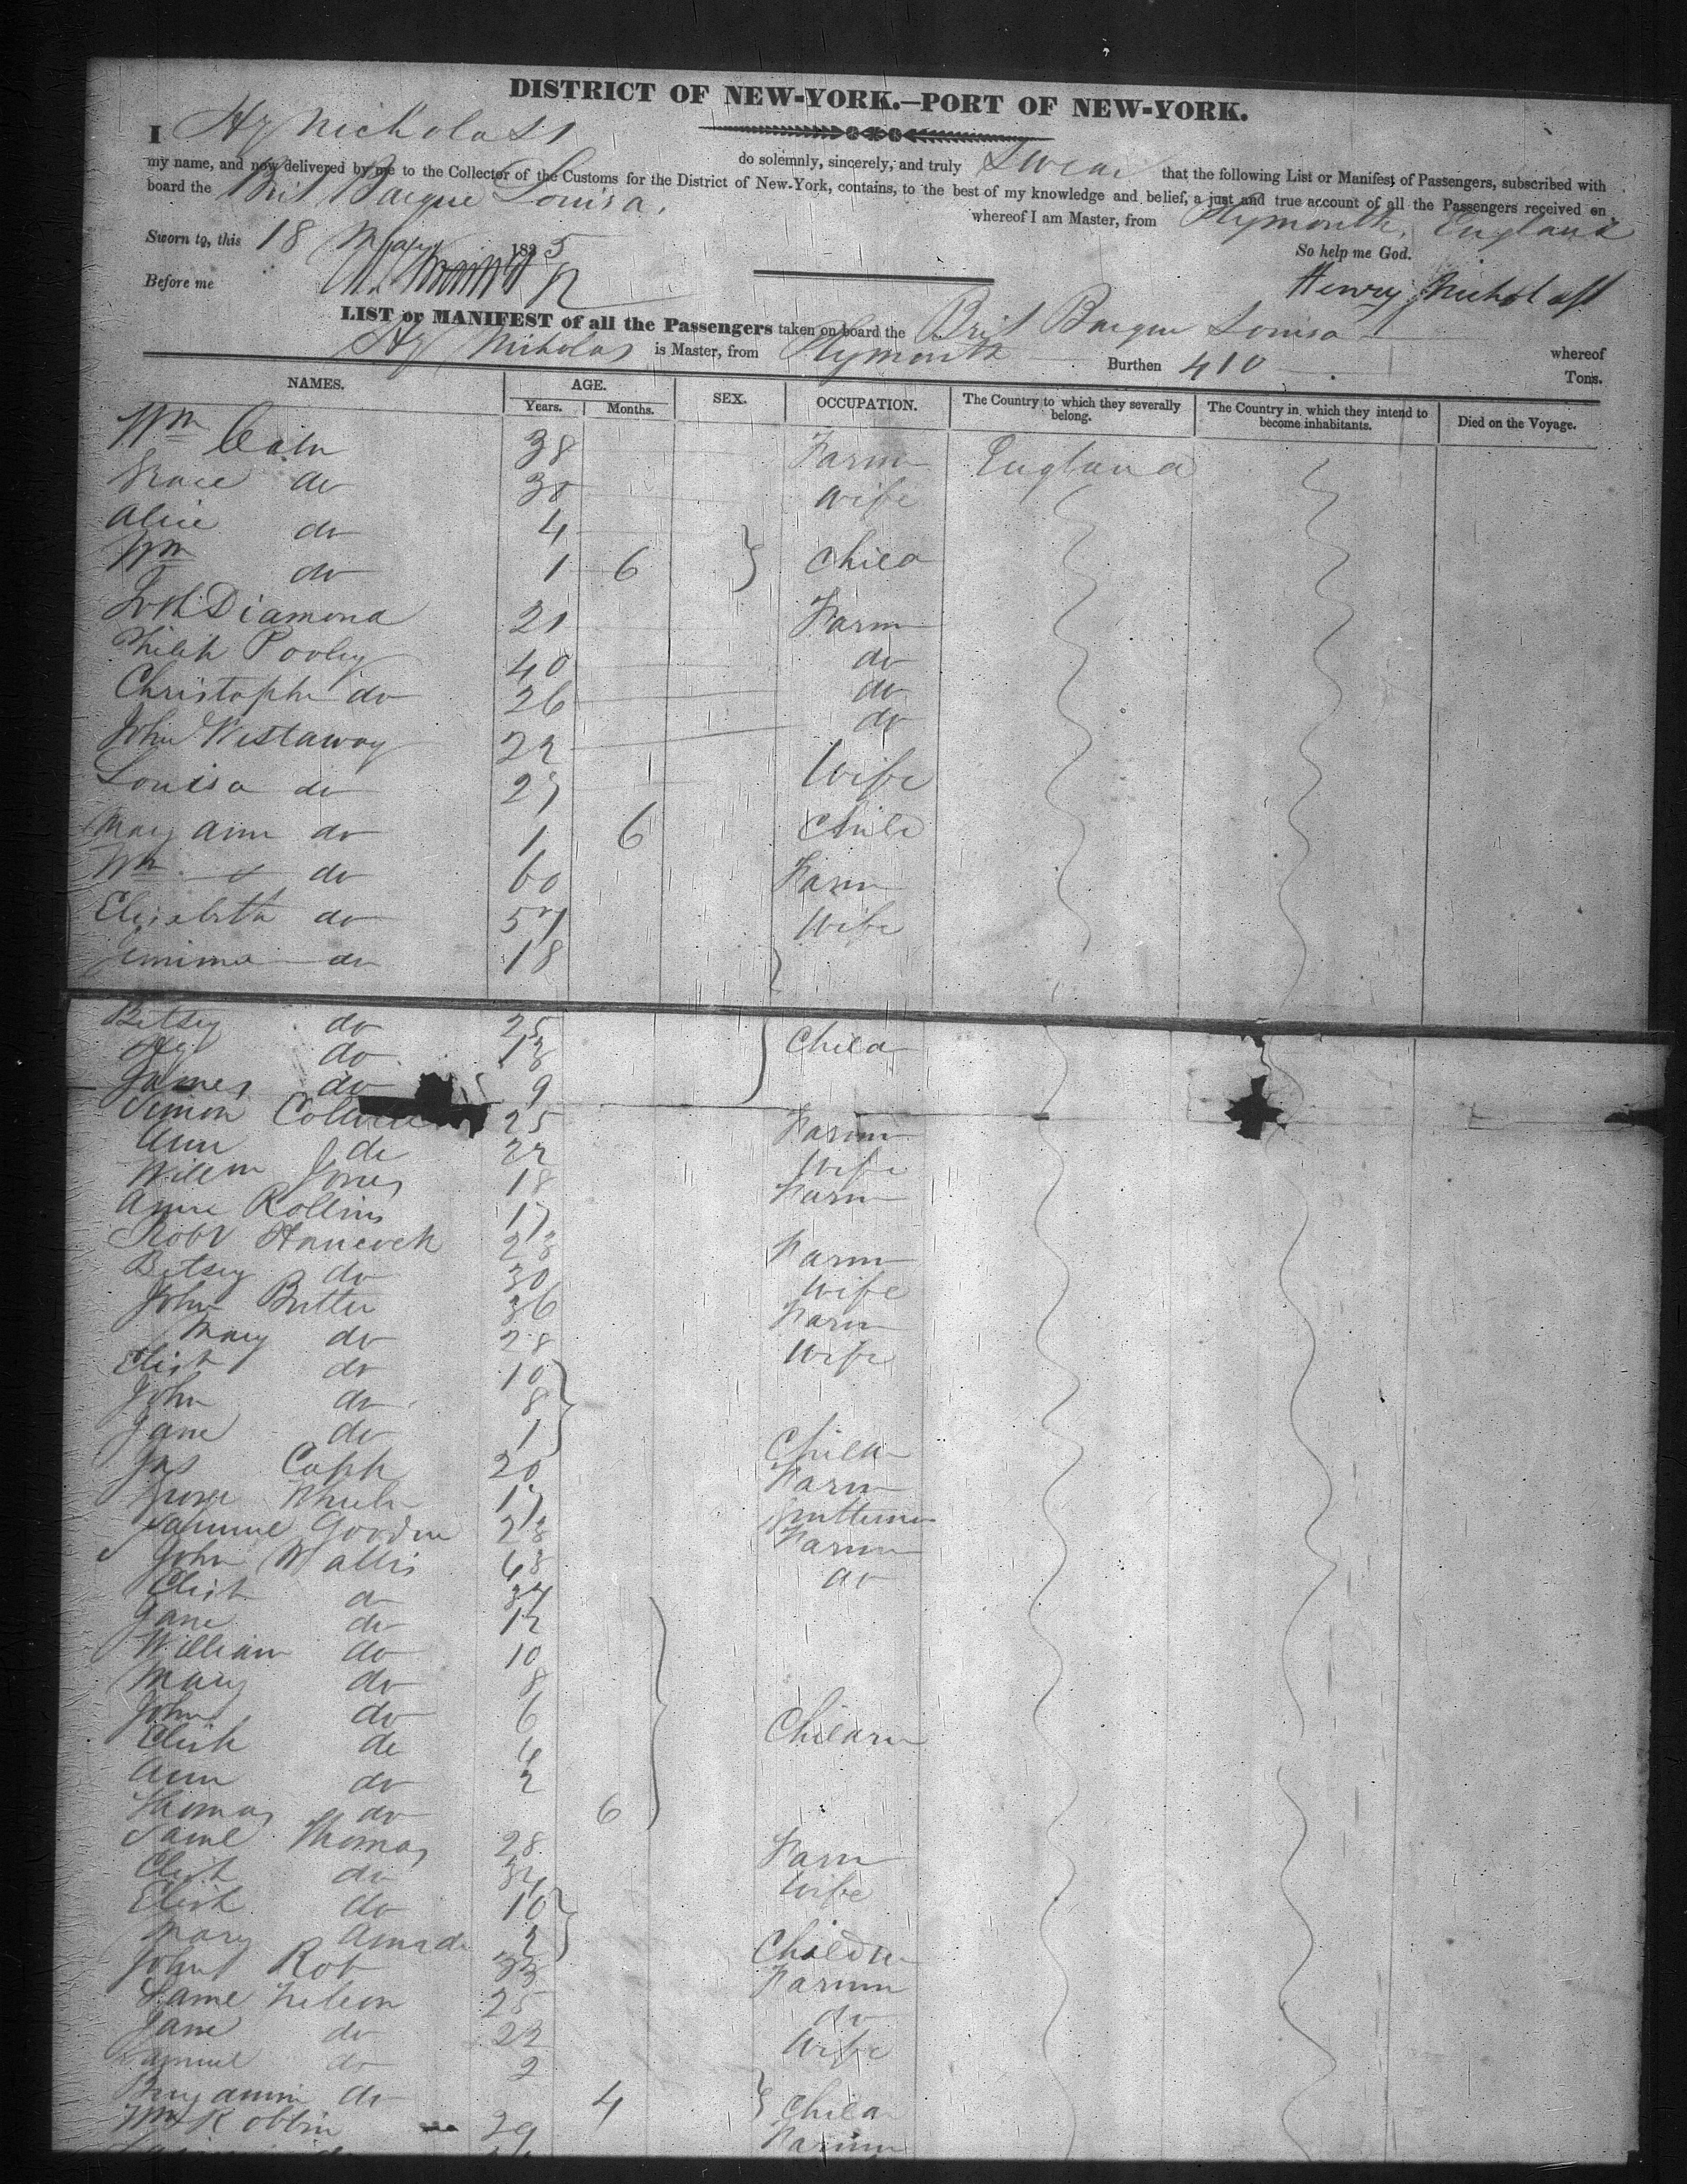 DISTRICT OF NEW-YORK.—PORT OF NEW-YORK.
I Hy Nicholass do solemnly, sincerely, and truly Swear that the following List or Manifest of Passengers, subscribed with
my name, and now delivered by me to the Collector of the Customs for the District of New-York, contains, to the best of my knowledge and belief, a just and true account of all the Passengers received on
board the Brit Barque Louisa, whereof I am Master, from Plymouth, England
Sworn to, this 18 May 1835 So help me God.
Before me Henry Nicholass
LIST or MANIFEST of all the Passengers taken on board the Brit Barque Louisa whereof
Hy Nicholas is Master, from Plymouth Burthen 410 Tons.
NAMES. AGE. Years. Months. SEX. OCCUPATION. The Country to which they severally belong. The Country in which they intend to become inhabitants. Died on the Voyage.
Wm 38 Farm England
Grace do 30 Wife
Alice do 4
Wm do 1 6 Child
Diamond 21 Farm
Philip Pooley 40 do
Christophe do 26 do
John Westaway 22 do
Louisa do 27 Wife
Mary Ann do 1 6 Child
Wm do 60 Farm
Elizabeth do 57 Wife
Jemima do 18
Betsey do 25 Child
Hy do 13
James do 9
Simon 25 Farm
Ann do 22 Wife
Willm Jones 18 Farm
Anne Rollins 17
Robt Hancock 23 Farm
Betsey do 30 Wife
John Butter 36 Farm
Mary do 28 Wife
Elizh do 10
John do 8
Jane do 1 Child
Jas 20 Farm
17
Sammuel Goodm 23 Farm
John Wallis 43 do
Elizh do 34
Jane do 12
William do 10
Mary do 8
John do 6 Childrn
Elizh do 4
Ann do 2
Thomas do 6
Saml Thomas 28 Farm
Elizh do Wife
Elizh do 10
Mary Ann do 2 Childrn
John Rob 33 Farmm
Saml 25 do
Jane do 22 Wife
Samuel do 2
Benjamin do 4 Child
Wm Robbin 29 Farmm